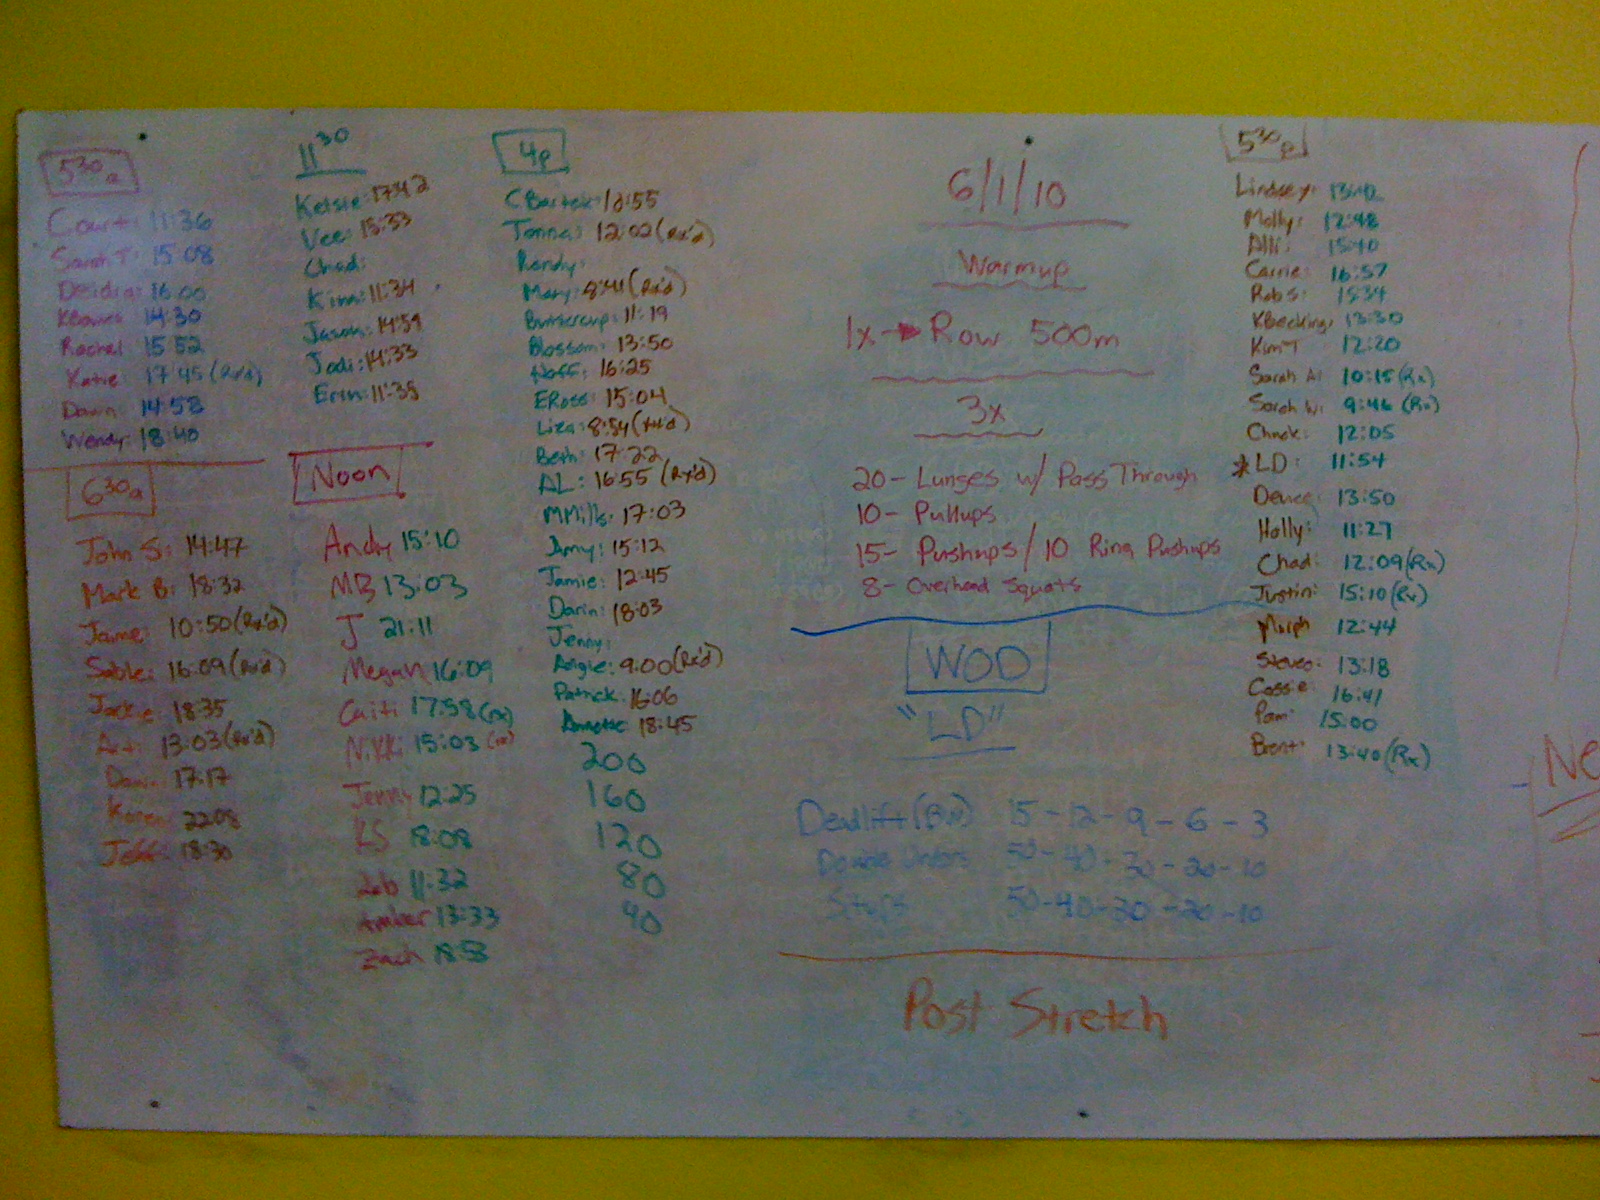 5³⁰a
Court: 11:36
Sarah T: 15:08
Deidra: 16:00
14:30
Rachel 15:52
Katie: 17:45 (Rx'd)
Dawn: 14:58
Wendy: 18:40
6³⁰a
John S: 14:47
Mark B: 18:32
Jaime: 10:50 (Rx'd)
Sable: 16:09 (Rx'd)
Jackie 18:35
Art: 13:03 (Rx'd)
17:17
Karen 22:08
Jeff: 18:30
11³⁰
Kelsie: 17:42
Vee:
Chad:
Kim: 11:34
Jason: 14:59
Jodi: 14:33
Erin: 11:35
Noon
Andy 15:10
MB 13:03
J 21:11
Megan 16:09
Caiti 17:58 (rx)
Nikki 15:03 (rx)
Jenny 12:25
KS 18:08
11:32
Amber 13:33
Zach 18:58
4p
C Bartek:
12:02 (Rx'd)
Randy:
Mary: 8:41 (Rx'd)
Buttercup: 11:19
Blossom: 13:50
Hoff: 16:25
E Ross: 15:04
Liza: 8:54 (Rx'd)
Beth: 17:22
AL: 16:55 (Rx'd)
M Mills: 17:03
Amy: 15:12
Jamie: 12:45
Darin: 18:03
Jenny:
Angie: 9:00 (Rx'd)
Patrick: 16:06
Annette: 18:45
200
160
120
80
40
6/1/10
Warmup
1x → Row 500m
3x
20- Lunges w/ Pass Through
10- Pullups
15- Pushups / 10 Ring Pushups
8- Overhead Squats
WOD
"LD"
Deadlift 15 - 12 - 9 - 6 - 3
Double Unders 50 - 40 - 30 - 20 - 10
Situps 50 - 40 - 30 - 20 - 10
Post Stretch
5³⁰p
Lindsey:
Molly: 12:48
Alli: 15:40
Carrie: 16:57
Rob S: 15:34
13:30
Kim T 12:20
Sarah A: 10:15 (Rx)
Sarah W: 9:46 (Rx)
Chuck: 12:05
*LD: 11:54
Deuce: 13:50
Holly: 11:27
Chad: 12:09 (Rx)
Justin: 15:10 (Rx)
Murph 12:44
Steveo: 13:18
Cassie 16:41
Pam: 15:00
Brent: 13:40 (Rx)
Ne